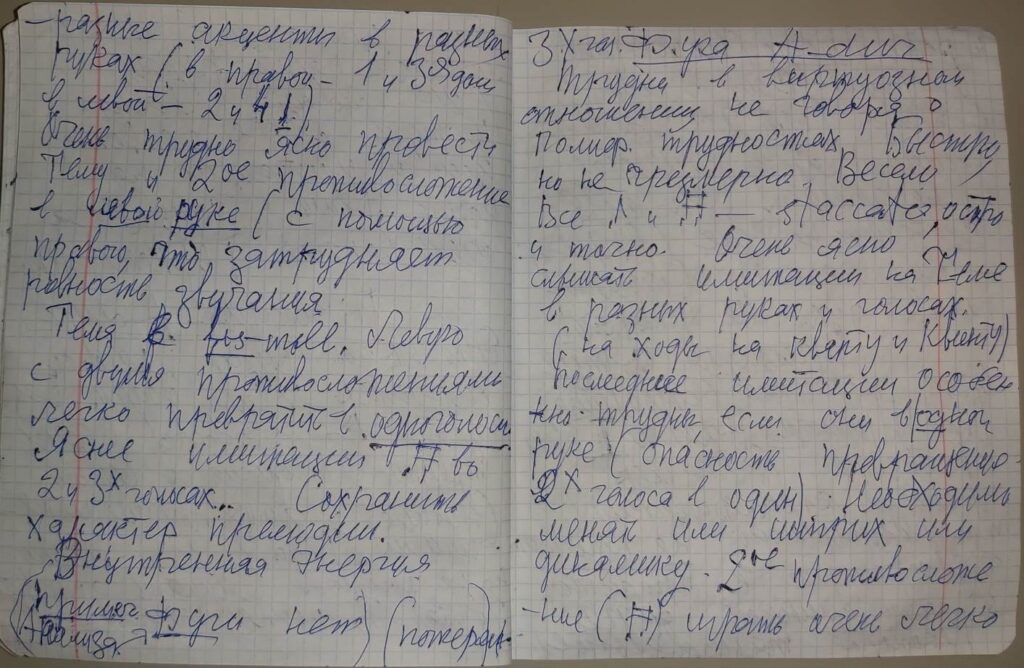 - разные акценты в разных
руках (в правой - 1 и 3я доли
в левой - 2 и 4)
Очень трудно ясно провести
Тему и 2ое противосложение
в левой руке (с помощью
правой, что затрудняет
ровность звучания.
Тема в
с двумя противосложениями
легко превратить в одноголосие
Яснее имитации во
2 и 3х голосах.. Сохранить
характер прелюдии.
Внутренняя Энергия
(примеч. Фуги нет)
3х гол. Фуга A-dur
Трудна в виртуозном
отношении, не говоря о
полиф. трудностях. Быстро,
но не чрезмерно. Весело
Все и - staccato, остро
и точно. Очень ясно
слышать имитации на Теме
в разных руках и голосах.
(на ходы на кварту и Квинту)
последние имитации особен
но трудны, если они в одной
руке (опасность превращения
2х голоса в один). Необходимо
менять или штрих или
динамику. 2ое противосложе
-ние ( ) играть очень легко